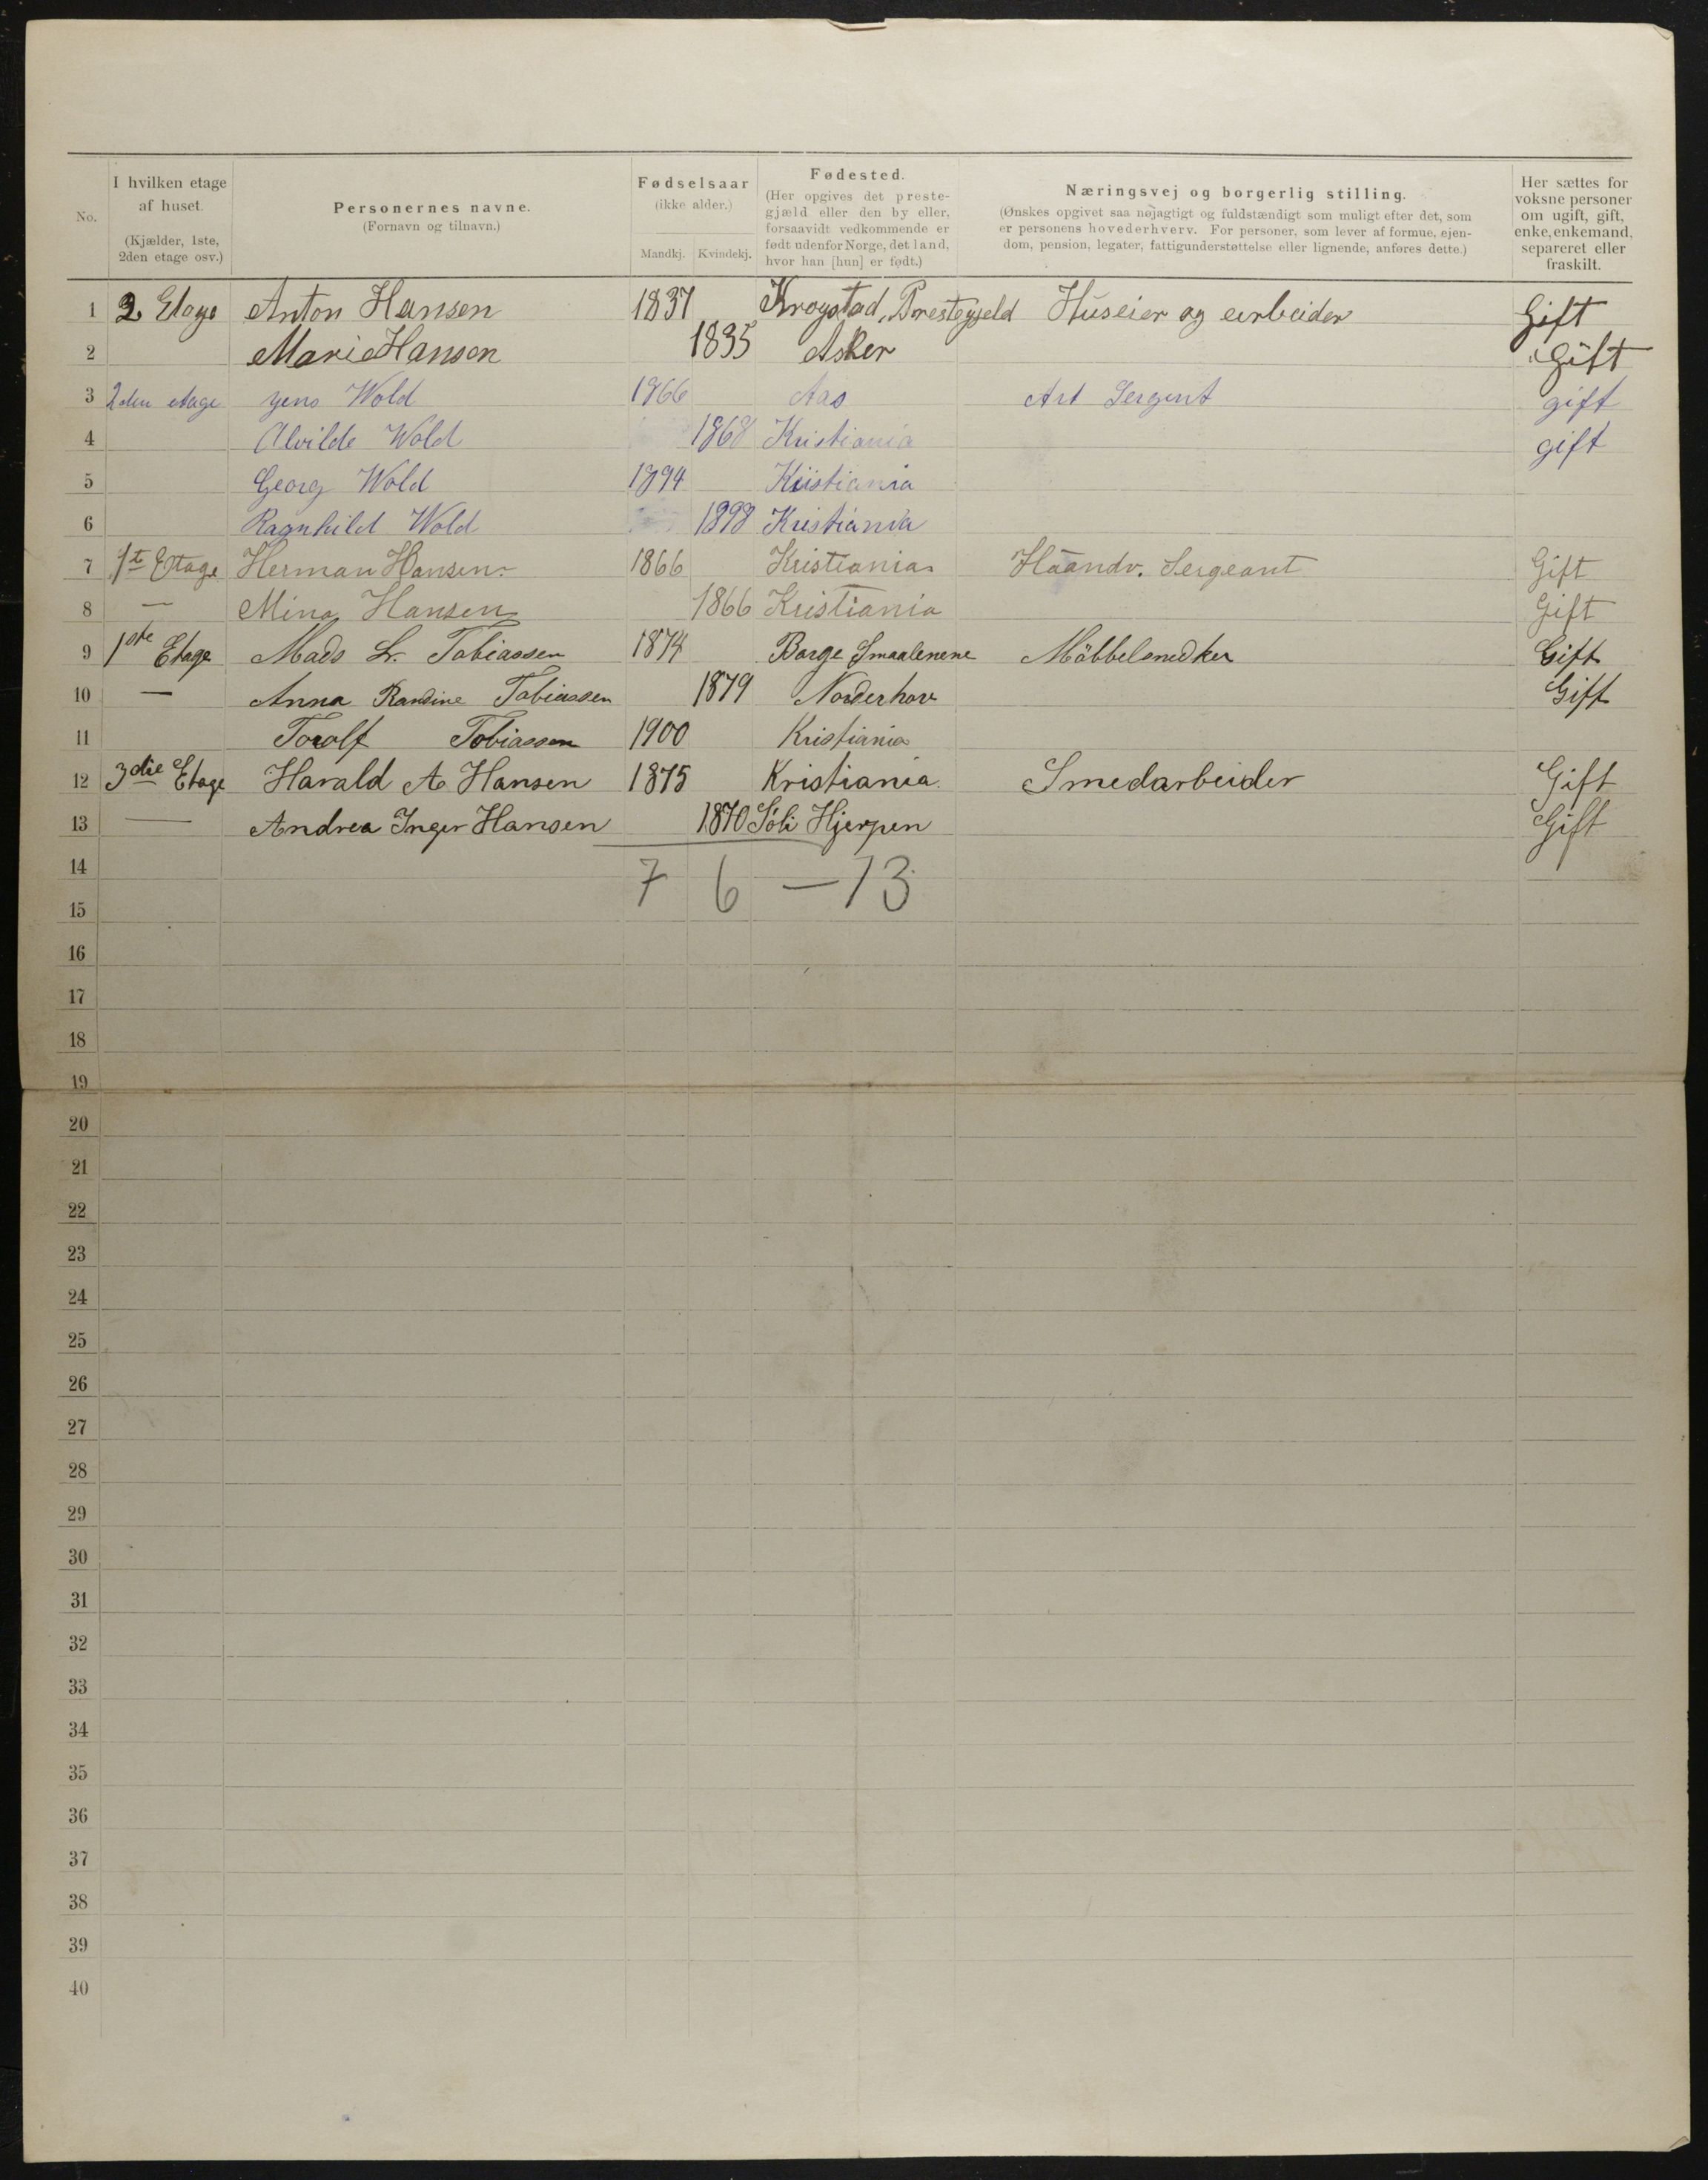 No. | I hvilken etage af huset. (Kjælder, 1ste, 2den etage osv.) | Personernes navne. (Fornavn og tilnavn.) | Fødselsaar (ikke alder.) Mandkj. Kvindekj. | Fødested. (Her opgives det prestegjæld eller den by eller, forsaavidt vedkommende er født udenfor Norge, det land, hvor han [hun] er født.) | Næringsvej og borgerlig stilling. (Ønskes opgivet saa nøjagtigt og fuldstændigt som muligt efter det, som er personens hovederhverv. For personer, som lever af formue, ejendom, pension, legater, fattigunderstøttelse eller lignende, anføres dette.) | Her sættes for voksne personer om ugift, gift, enke, enkemand, separeret eller fraskilt.
1 2 Etage Anton Hansen 1837 Krogstad, Prestegjeld Huseier og arbeider Gift
2 Marie Hansen 1835 Asker Gift
3 2den etage Jens Wold 1866 Aas Art Sergent gift
4 Alvilde Wold 1868 Kristiania gift
5 Georg Wold 1894 Kristiania
6 Ragnhild Wold 1898 Kristiania
7 1te Etage Herman Hansen 1866 Kristiania Haandv. Sergeant Gift
8 — Mina Hansen 1866 Kristiania Gift
9 1ste Etage Mads L. Tobiassen 1874 Borge Smaalenene Möbbelsnedker Gift
10 — Anna Randine Tobiassen 1879 Norderhov Gift
11 Torolf Tobiassen 1900 Kristiania
12 3die Etage Harald A Hansen 1875 Kristiania Smedarbeider Gift
13 — Andrea Inger Hansen 1870 Söli Hjerpen Gift
14
7 6 — 13
15
16
17
18
19
20
21
22
23
24
25
26
27
28
29
30
31
32
33
34
35
36
37
38
39
40